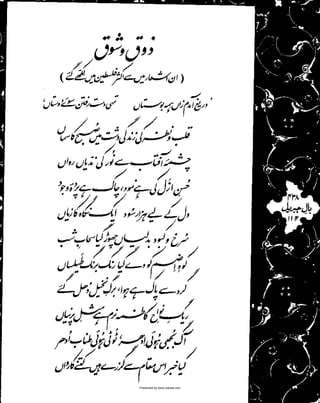 ذوق و شوق
(ان اشعار میں سے اکثر فلسطین میں لکھے گئے)
'دریغ آمدم زاں ہمہ بوستاں تہی دست رفتن سوئے دوستاں'
قلب و نظر کی زندگی دشت میں صبح کا سماں
چشمۂ آفتاب سے نور کی ندیاں رواں
حسنِ ازل کی ہے نمود، چاک ہے پردۂ وجود
دل کے لیے ہزار سود ایک نگاہ کا زیاں
سرخ و کبود بدلیاں چھوڑ گیا سحابِ شب
کوہِ اضم کو دے گیا رنگ برنگ طیلساں
گرد سے پاک ہے ہوا، برگِ نخیل دھل گئے
ریگِ نواحِ کاظمہ نرم ہے مثلِ پرنیاں
آگ بجھی ہوئی ادھر، ٹوٹی ہوئی طناب ادھر
کیا خبر اس مقام سے گزرے ہیں کتنے کارواں
۴۳۸
بالِ جبریل
۱۱۴